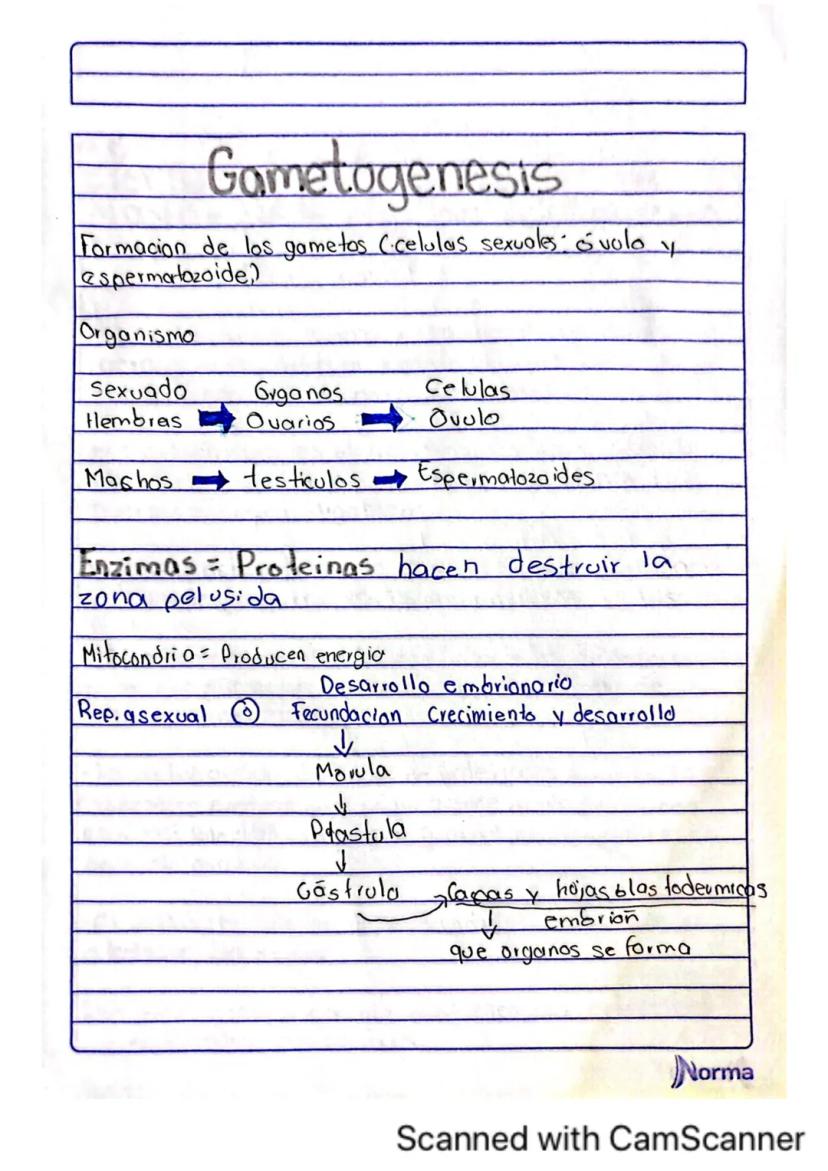 Gametogenesis
Formacion de los gametos (celulas sexuales: óvulo y
espermatozoide)
Organismo
sexuado Organos Celulas
Hembras ➡ Ovarios ➡ Óvulo
Machos ➡ testiculos ➡ Espermatozoides
Enzimas = Proteinas hacen destruir la
zona pelusida
Mitocondria = Producen energia
Desarrollo embrionario
Rep. asexual ó Fecundacion Crecimiento y desarrollo
↓
Morula
↓
↓
Gástrula Capas y hojas blastodermicas
embrion
↓
que organos se forma
Norma
Scanned with CamScanner